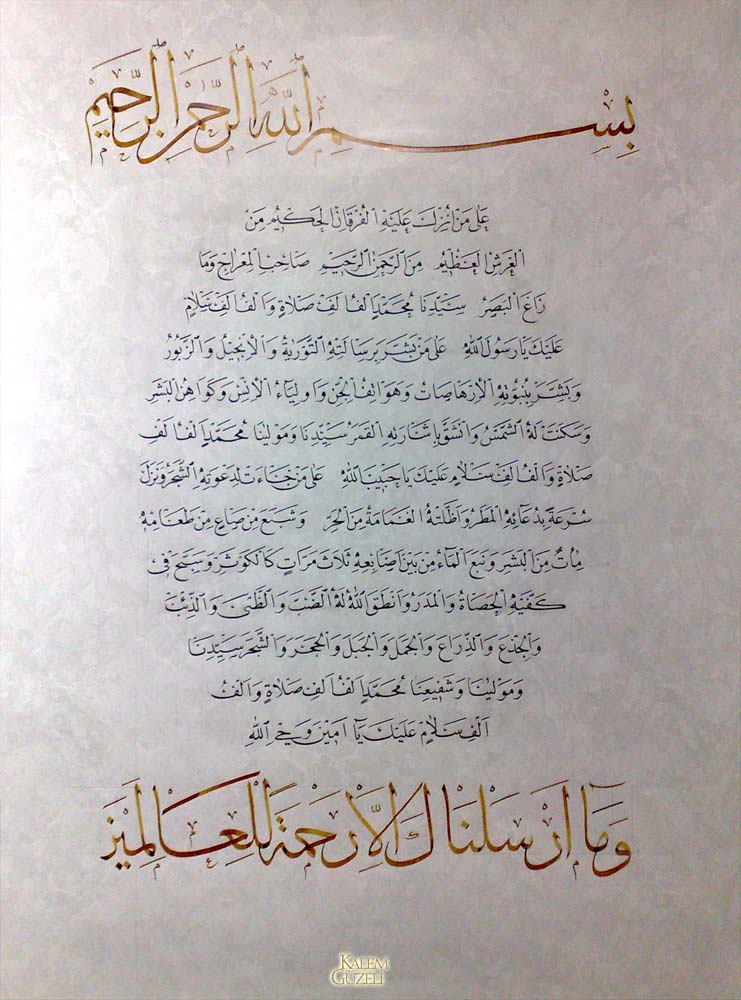 بِسْمِ اللهِ الرَّحْمٰنِ الرَّحِيمِ
عَلَى مَنْ أُنْزِلَ عَلَيْهِ الْفُرْقَانُ الْحَكِيمُ مِنَ
الْعَرْشِ الْعَظِيمِ مِنَ الرَّحْمٰنِ الرَّحِيمِ صَاحِبِ الْمِعْرَاجِ وَمَا
زَاغَ الْبَصَرُ سَيِّدِنَا مُحَمَّدٍ أَلْفُ أَلْفِ صَلَاةٍ وَأَلْفُ أَلْفِ سَلَامٍ
عَلَيْكَ يَا رَسُولَ اللهِ عَلَى مَنْ بَشَّرَ بِرِسَالَتِهِ التَّوْرٰيةُ وَالْإِنْجِيلُ وَالزَّبُورُ
وَبَشَّرَ بِنُبُوَّتِهِ الْإِرْهَاصَاتُ وَهَوَاتِفُ الْجِنِّ وَأَوْلِيَاءُ الْإِنْسِ وَكَوَاهِنُ الْبَشَرِ
وَسَكَنَتْ لَهُ الشَّمْسُ وَانْشَقَّ بِإِشَارَتِهِ الْقَمَرُ سَيِّدِنَا وَمَوْلٰينَا مُحَمَّدٍ أَلْفُ أَلْفِ
صَلَاةٍ وَأَلْفُ أَلْفِ سَلَامٍ عَلَيْكَ يَا حَبِيبَ اللهِ عَلَى مَنْ جَاءَتْ لِدَعْوَتِهِ الشَّجَرُ وَنَزَلَ
سُرْعَةً بِدُعَائِهِ الْمَطَرُ وَأَظَلَّتْهُ الْغَمَامَةُ مِنَ الْحَرِّ وَشَبِعَ مِنْ صَاعٍ مِنْ طَعَامِهِ
مِأَتٌ مِنَ الْبَشَرِ وَنَبَعَ الْمَاءُ مِنْ بَيْنِ أَصَابِعِهِ ثَلَاثَ مَرَّاتٍ كَالْكَوْثَرِ وَسَبَّحَ فِي
كَفَّيْهِ الْحَصَاةُ وَالْمَدَرُ وَأَنْطَقَ اللهُ لَهُ الضَّبَّ وَالظَّبْيَ وَالذِّئْبَ
وَالْجِذْعَ وَالذِّرَاعَ وَالْجَمَلَ وَالْجَبَلَ وَالْحَجَرَ وَالشَّجَرَ سَيِّدِنَا
وَمَوْلٰينَا وَشَفِيعِنَا مُحَمَّدٍ أَلْفُ أَلْفِ صَلَاةٍ وَأَلْفُ
أَلْفِ سَلَامٍ عَلَيْكَ يَا أَمِينَ وَحْيِ اللهِ
وَمَا أَرْسَلْنَاكَ إِلَّا رَحْمَةً لِلْعَالَمِينَ
KALEM
GÜZELİ